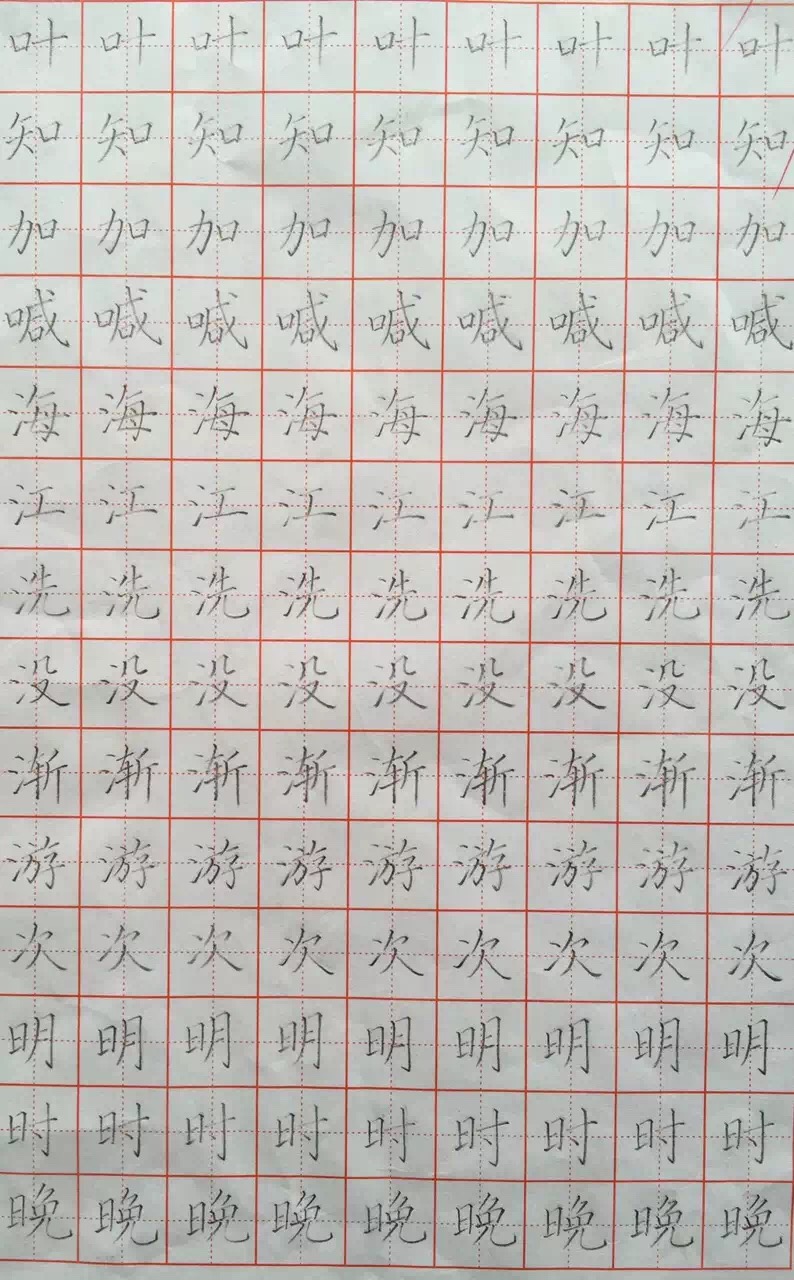 叶叶叶叶叶叶叶叶叶
知知知知知知知知知
加加加加加加加加加
喊喊喊喊喊喊喊喊喊
海海海海海海海海海
江江江江江江江江江
洗洗洗洗洗洗洗洗洗
没没没没没没没没没
渐渐渐渐渐渐渐渐渐
游游游游游游游游游
次次次次次次次次次
明明明明明明明明明
时时时时时时时时时
晚晚晚晚晚晚晚晚晚